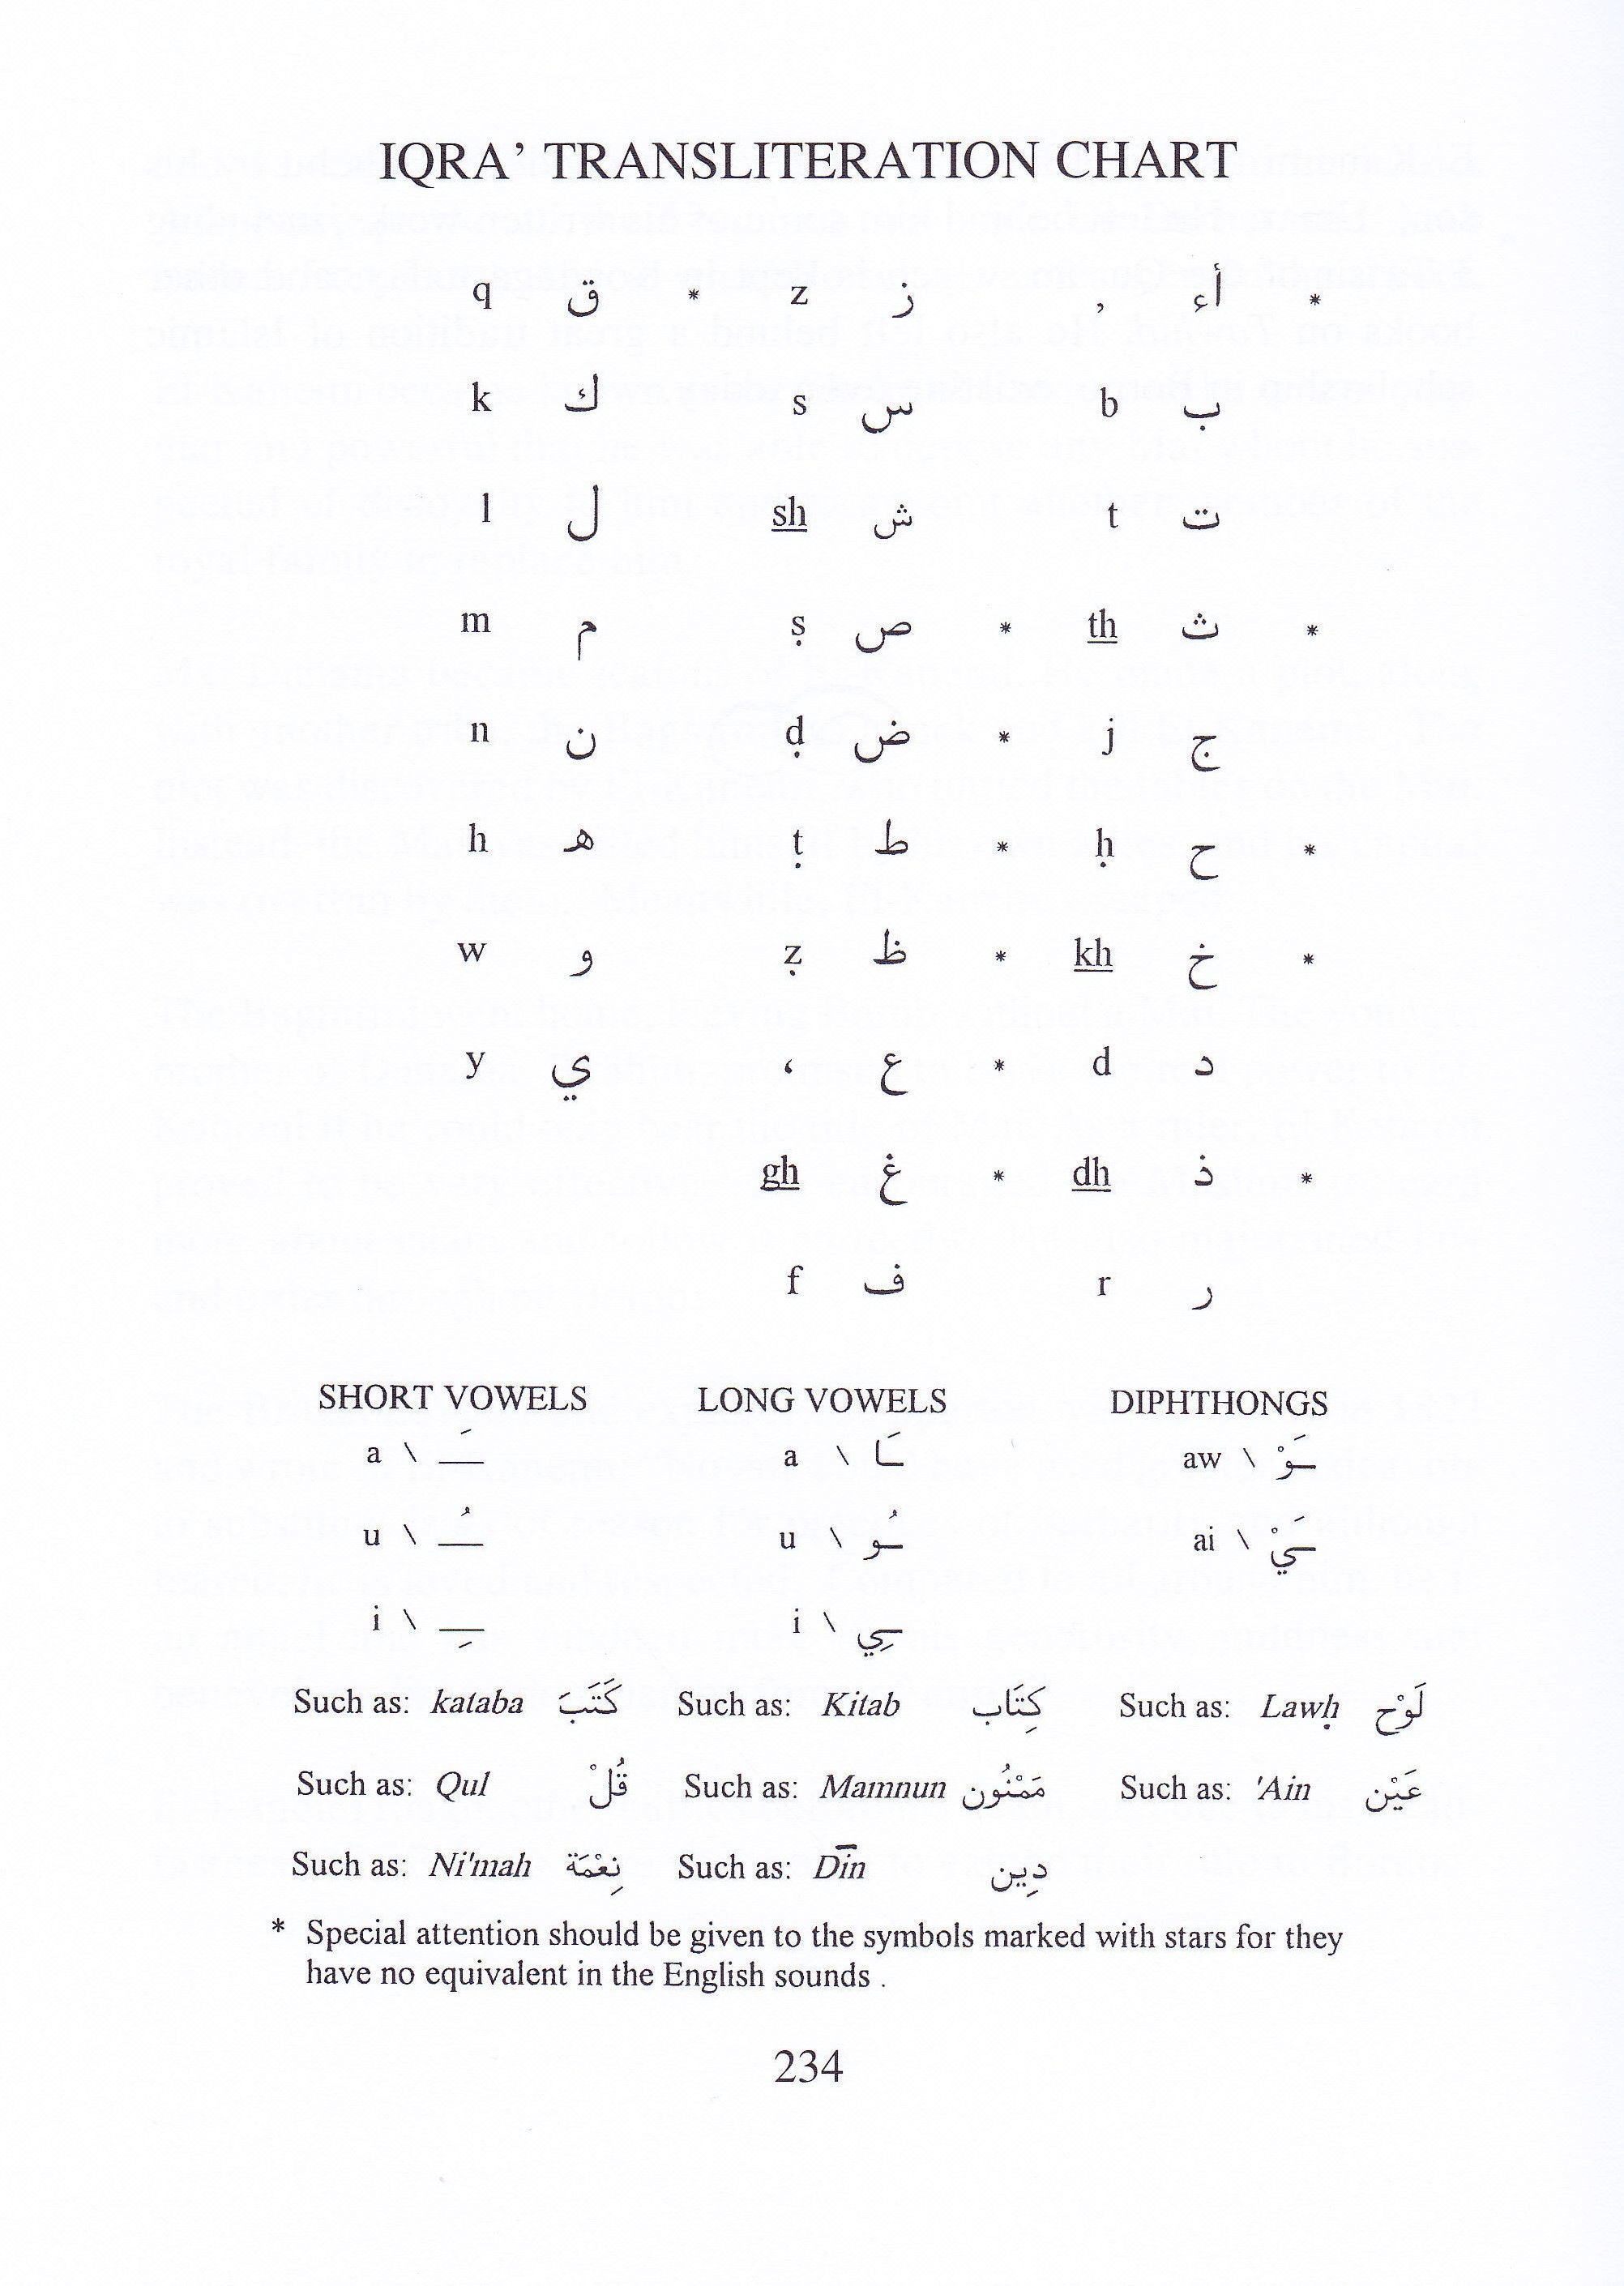 IQRA’ TRANSLITERATION CHART
q ق * z ز ’ أء *
k ك s س b ب
l ل sh ش t ت
m م ṣ ص * th ث *
n ن ḍ ض * j ج
h ه ṭ ط * ḥ ح *
w و ẓ ظ * kh خ *
y ي ‘ ع * d د
gh غ * dh ذ *
f ف r ر
SHORT VOWELS LONG VOWELS DIPHTHONGS
a \ ـَ a \ ـَا aw \ ـَوْ
u \ ـُ u \ ـُو ai \ ـَيْ
i \ ـِ i \ ـِي
Such as: kataba كَتَبَ Such as: Kitab كِتَاب Such as: Lawḥ لَوْح
Such as: Qul قُلْ Such as: Mamnun مَمْنُون Such as: 'Ain عَيْن
Such as: Ni'mah نِعْمَة Such as: Dīn دِين
* Special attention should be given to the symbols marked with stars for they
have no equivalent in the English sounds .
234